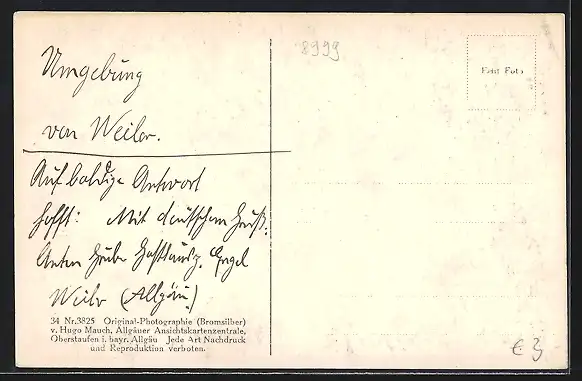 8999
Umgebung
von Weiler.
Auf baldige Antwort
hofft: Mit deutschem Gruß.
Anton Gasthausz. Engel
Weiler (Allgäu)
Echt Foto
34 Nr.3825 Original-Photographie (Bromsilber)
v. Hugo Mauch, Allgäuer Ansichtskartenzentrale,
Oberstaufen i. bayr. Allgäu Jede Art Nachdruck
und Reproduktion verboten.
€ 3